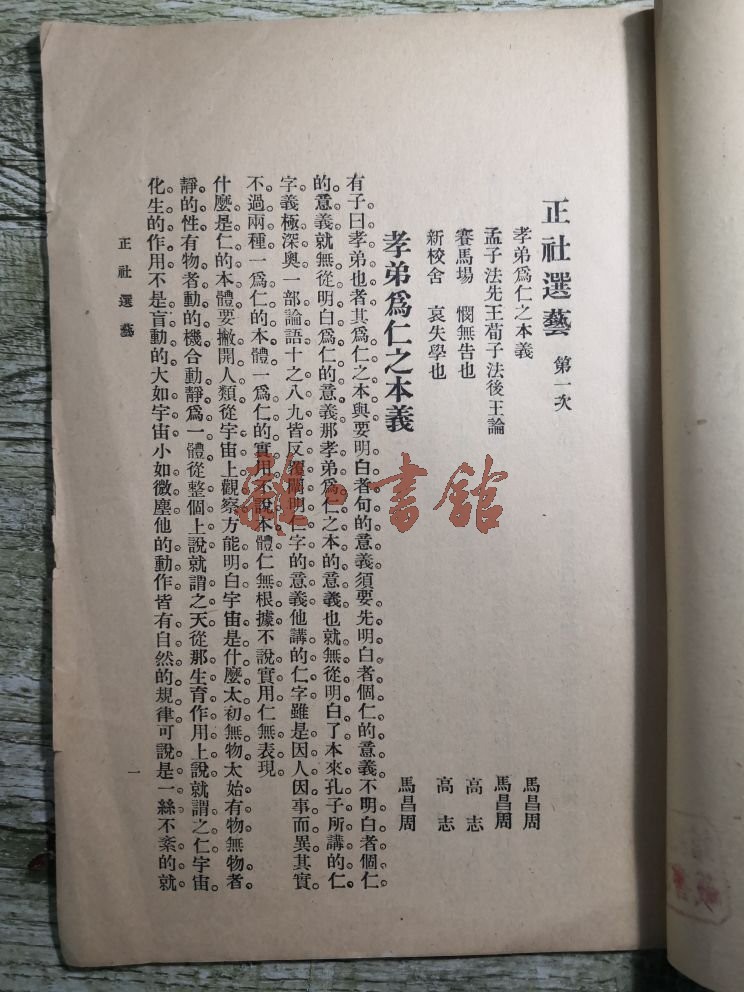 正社選藝 第一次
孝弟爲仁之本義 馬昌周
孟子法先王荀子法後王論 馬昌周
賽馬場 憫無告也 高志
新校舍 哀失學也 高志
孝弟爲仁之本義 馬昌周
有子曰孝弟也者其爲仁之本與要明白者句的意義須要先明白者個仁的意義不明白者個仁
的意義就無從明白爲仁的意義那孝弟爲仁之本的意義也就無從明白了本來孔子所講的仁
字義極深奥一部論語十之八九皆反覆闡明仁字的意義他講的仁字雖是因人因事而異其實
不過兩種一爲仁的本體一爲仁的實用不說本體仁無根據不說實用仁無表現。
什麼是仁的本體要撇開人類從宇宙上觀察方能明白宇宙是什麼太初無物太始有物無物者
靜的性有物者動的機合動靜爲一體從整個上說就謂之天從那生育作用上說就謂之仁宇宙
化生的作用不是盲動的大如宇宙小如微塵他的動作皆有自然的規律可說是一絲不紊的就
正社選藝
一
雜·書館